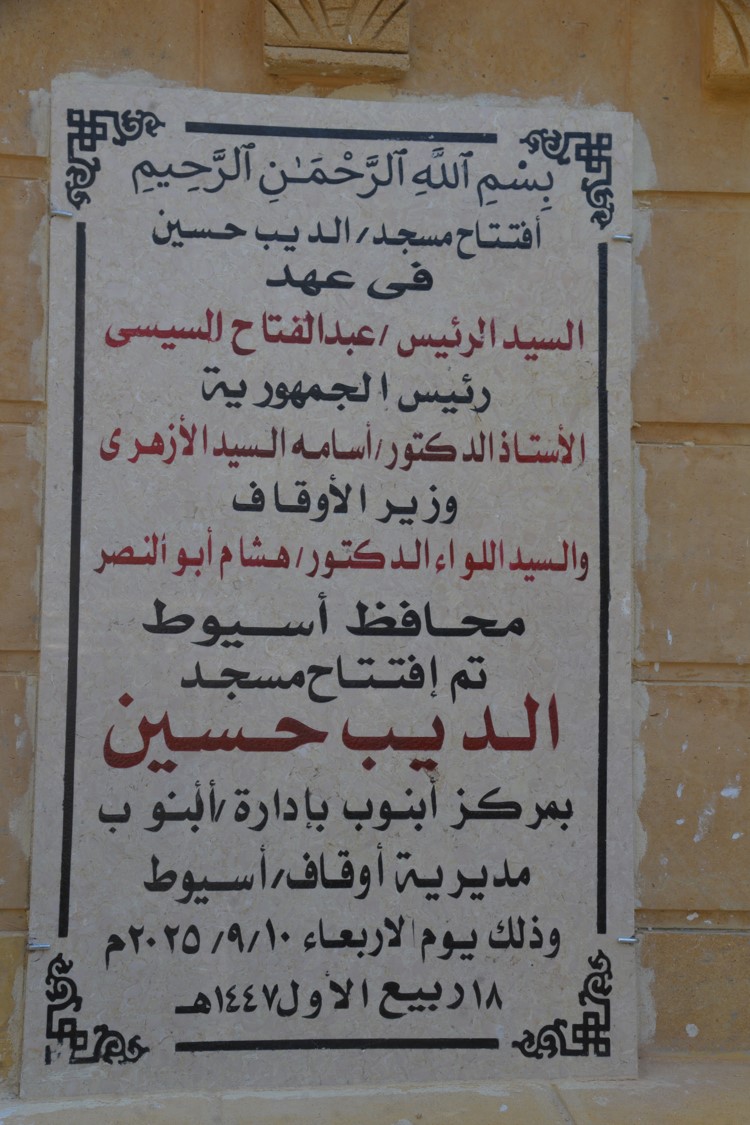 بِسْمِ ٱللَّهِ ٱلرَّحْمَـٰنِ ٱلرَّحِيمِ
أفتتاح مسجد/ الديب حسين
فى عهد
السيد الرئيس /عبدالفتاح السيسى
رئيس الجمهورية
الأستاذ الدكتور/أسامه السيد الأزهرى
وزير الأوقاف
والسيد اللواء الدكتور/ هشام أبو النصر
محافظ أسيوط
تم إفتتاح مسجد
الديب حسين
بمركز أبنوب بإدارة /أبنوب
مديرية أوقاف/ أسيوط
وذلك يوم الاربعاء ٢٠٢٥/٩/١٠م
١٨ ربيع الأول ١٤٤٧هـ